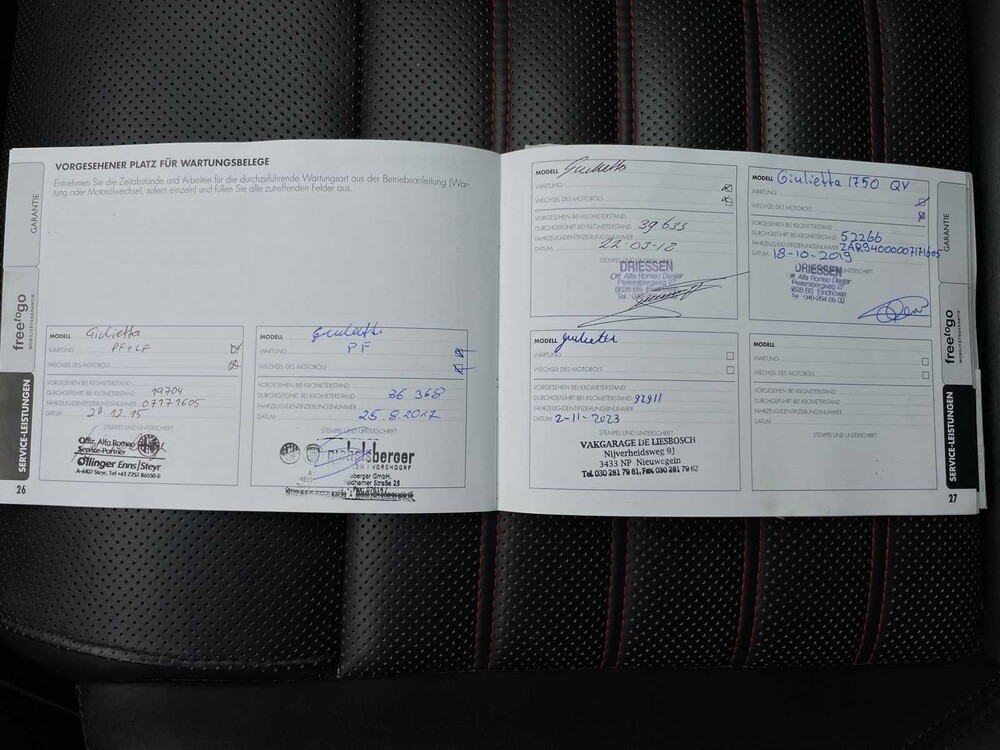 VORGESEHENER PLATZ FÜR WARTUNGSBELEGE
Entnehmen Sie die Zeitabstände und Arbeiten für die durchzuführende Wartungsart aus der Betriebsanleitung (War-
tung oder Motorölwechsel, sofern einzeln) und füllen Sie alle zutreffenden Felder aus.
GARANTIE
freetogo
MOBILITÄTSGARANTIE
SERVICE-LEISTUNGEN
26
MODELL Giulietta
WARTUNG PF+LF
WECHSEL DES MOTORÖLS
VORGESEHEN BEI KILOMETERSTAND
DURCHGEFÜHRT BEI KILOMETERSTAND 19704
FAHRZEUGIDENTIFIZIERUNGSNUMMER 07171605
DATUM 23.12.15
STEMPEL UND UNTERSCHRIFT
Offiz. Alfa Romeo
Service-Partner
Öllinger Enns/Steyr
A-4407 Steyr, Tel +43 7252
MODELL Giulietta
WARTUNG PF
WECHSEL DES MOTORÖLS
VORGESEHEN BEI KILOMETERSTAND
DURCHGEFÜHRT BEI KILOMETERSTAND 36 368
FAHRZEUGIDENTIFIZIERUNGSNUMMER
DATUM 25.8.2017
STEMPEL UND UNTERSCHRIFT
berger
VORCHDORF
berger GmbH,
Straße 25
MODELL Giulietta
WARTUNG
WECHSEL DES MOTORÖLS
VORGESEHEN BEI KILOMETERSTAND
DURCHGEFÜHRT BEI KILOMETERSTAND 39 633
FAHRZEUGIDENTIFIZIERUNGSNUMMER
DATUM 22-03-18
STEMPEL UND UNTERSCHRIFT
DRIESSEN
Off. Alfa Romeo Dealer
Pietersbergweg 27
5628 BS Eindhoven
Tel. 040
MODELL Giulietta 1750 QV
WARTUNG
WECHSEL DES MOTORÖLS
VORGESEHEN BEI KILOMETERSTAND
DURCHGEFÜHRT BEI KILOMETERSTAND 52266
FAHRZEUGIDENTIFIZIERUNGSNUMMER ZAR94000007171605
DATUM 18-10-2019
STEMPEL UND UNTERSCHRIFT
DRIESSEN
Off. Alfa Romeo Dealer
Pietersbergweg 27
5628 BS Eindhoven
Tel: 040-264 55 00
MODELL Giulietta
WARTUNG
WECHSEL DES MOTORÖLS
VORGESEHEN BEI KILOMETERSTAND
DURCHGEFÜHRT BEI KILOMETERSTAND 92911
FAHRZEUGIDENTIFIZIERUNGSNUMMER
DATUM 2-11-2023
STEMPEL UND UNTERSCHRIFT
VAKGARAGE DE LIESBOSCH
Nijverheidsweg 9J
3433 NP Nieuwegein
Tel. 030 281 79 61, Fax 030 281 79 62
MODELL
WARTUNG
WECHSEL DES MOTORÖLS
VORGESEHEN BEI KILOMETERSTAND
DURCHGEFÜHRT BEI KILOMETERSTAND
FAHRZEUGIDENTIFIZIERUNGSNUMMER
DATUM
STEMPEL UND UNTERSCHRIFT
GARANTIE
freetogo
MOBILITÄTSGARANTIE
SERVICE-LEISTUNGEN
27